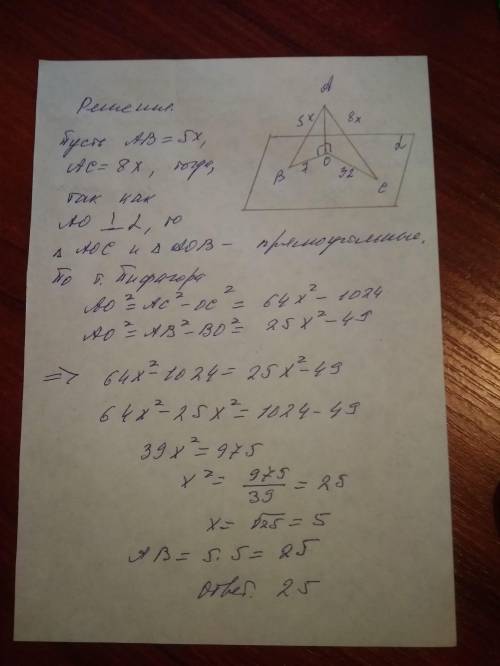 Решения.
Пусть AB = 5x,
AC = 8x, тогда,
так как
AO ⊥ α, то
△ AOC и △ AOB – прямоугольные.
По т. Пифагора
AO² = AC² - OC² = 64x² - 1024
AO² = AB² - BO² = 25x² - 49
=> 64x² - 1024 = 25x² - 49
64x² - 25x² = 1024 - 49
39x² = 975
x² = 975/39 = 25
x = √25 = 5
AB = 5·5 = 25
Ответ. 25
A
5x 8x
α
B 7 O 32 C